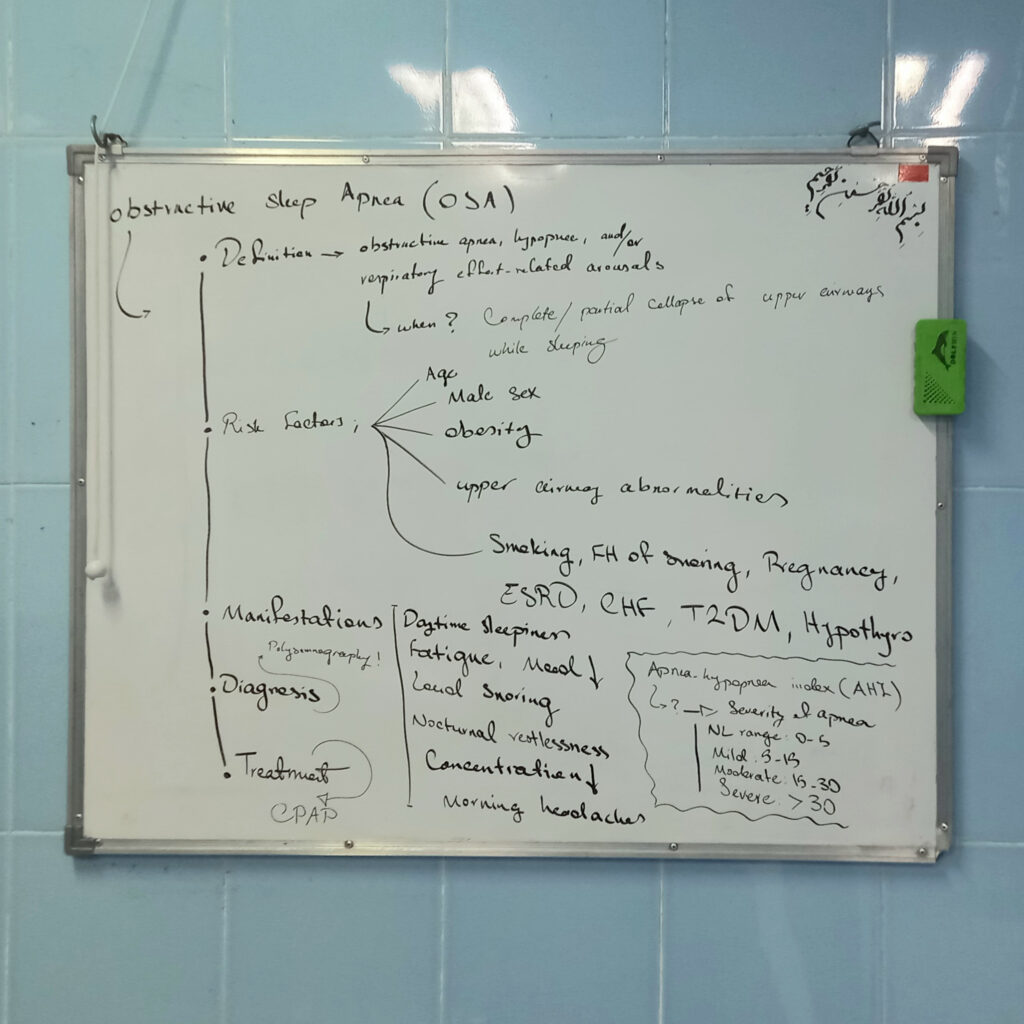 بسم الله الرحمن الرحیم
Obstructive Sleep Apnea (OSA)
Definition → obstructive apnea, hypopnee, and/or
respiratory effort-related arousals
when? Complete/partial collapse of upper airways
while sleeping
Risk factors;
Age
Male sex
obesity
upper airway abnormalities
Smoking, FH of snoring, Pregnancy,
ESRD, CHF, T2DM, Hypothyro
Manifestations
Daytime sleepiness
Fatigue, Mood ↓
Loud snoring
Nocturnal restlessness
Concentration ↓
Morning headaches
Polysomnography!
Diagnosis
Treatment
CPAP
Apnea-hypopnea index (AHI)
? → Severity of apnea
NL range: 0-5
Mild: 5-15
Moderate: 15-30
Severe: >30
DOLPHIN